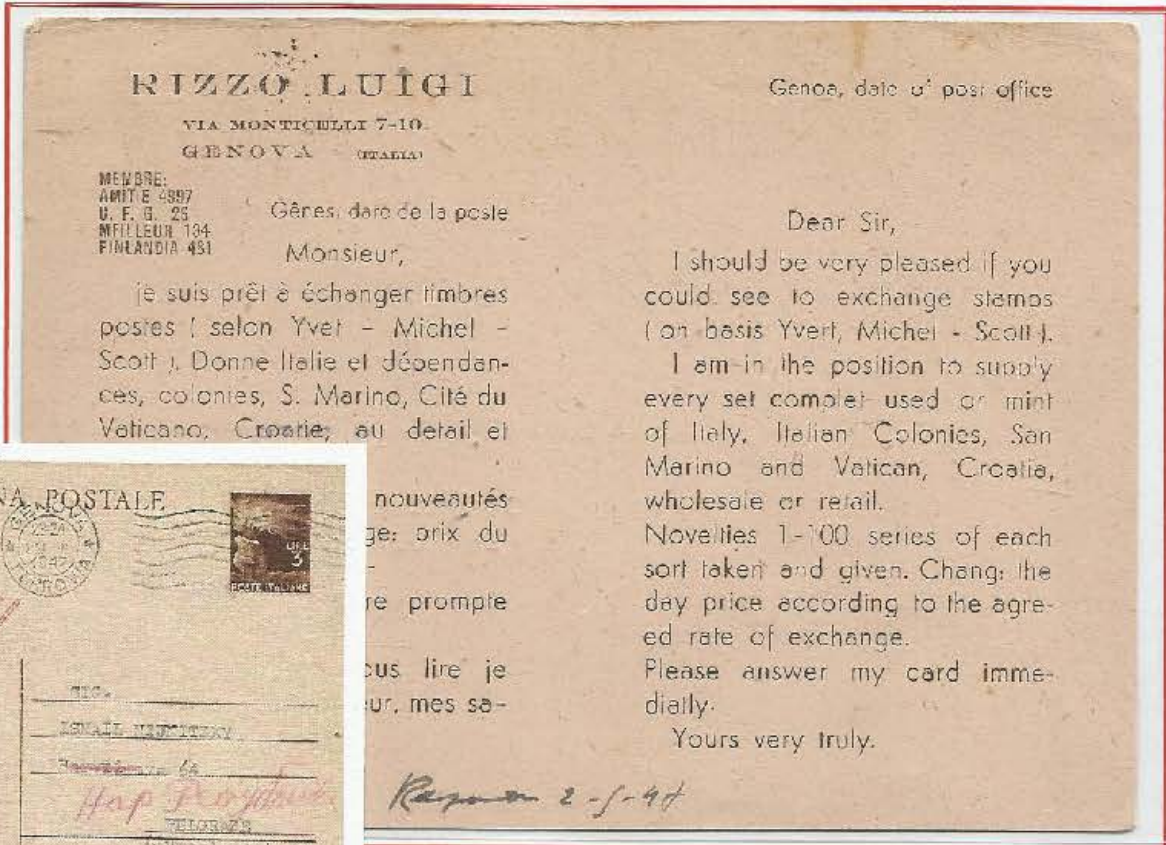 RIZZO LUIGI
VIA MONTICELLI 7-10
GENOVA (ITALIA)
MEMBRE:
AMITIE 4897
U. F. G. 26
MEILLEUR 134
FINLANDIA 481
Gênes, dare de la poste
Monsieur,
je suis prêt à échanger timbres
postes ( selon Yvet - Michel -
Scott ). Donne Italie et dépendan-
ces, colonies, S. Marino, Cité du
Vaticano, Croatie, au detail et
nouveautés
ge: prix du
re prompte
ous lire je
eur, mes sa-
Genoa, date of post office
Dear Sir,
I should be very pleased if you
could see to exchange stamps
( on basis Yvert, Michel - Scott ).
I am in the position to supply
every set complet used or mint
of Italy, Italian Colonies, San
Marino and Vatican, Croatia,
wholesale or retail.
Novelties 1-100 series of each
sort taken and given. Chang: the
day price according to the agre-
ed rate of exchange.
Please answer my card imme-
diatly.
Yours very truly.
2-5-47
NA POSTALE
GENOVA
1947
FERROVIA
LIRE
3
POSTE ITALIANE
SIG.
ISMAIL
6A